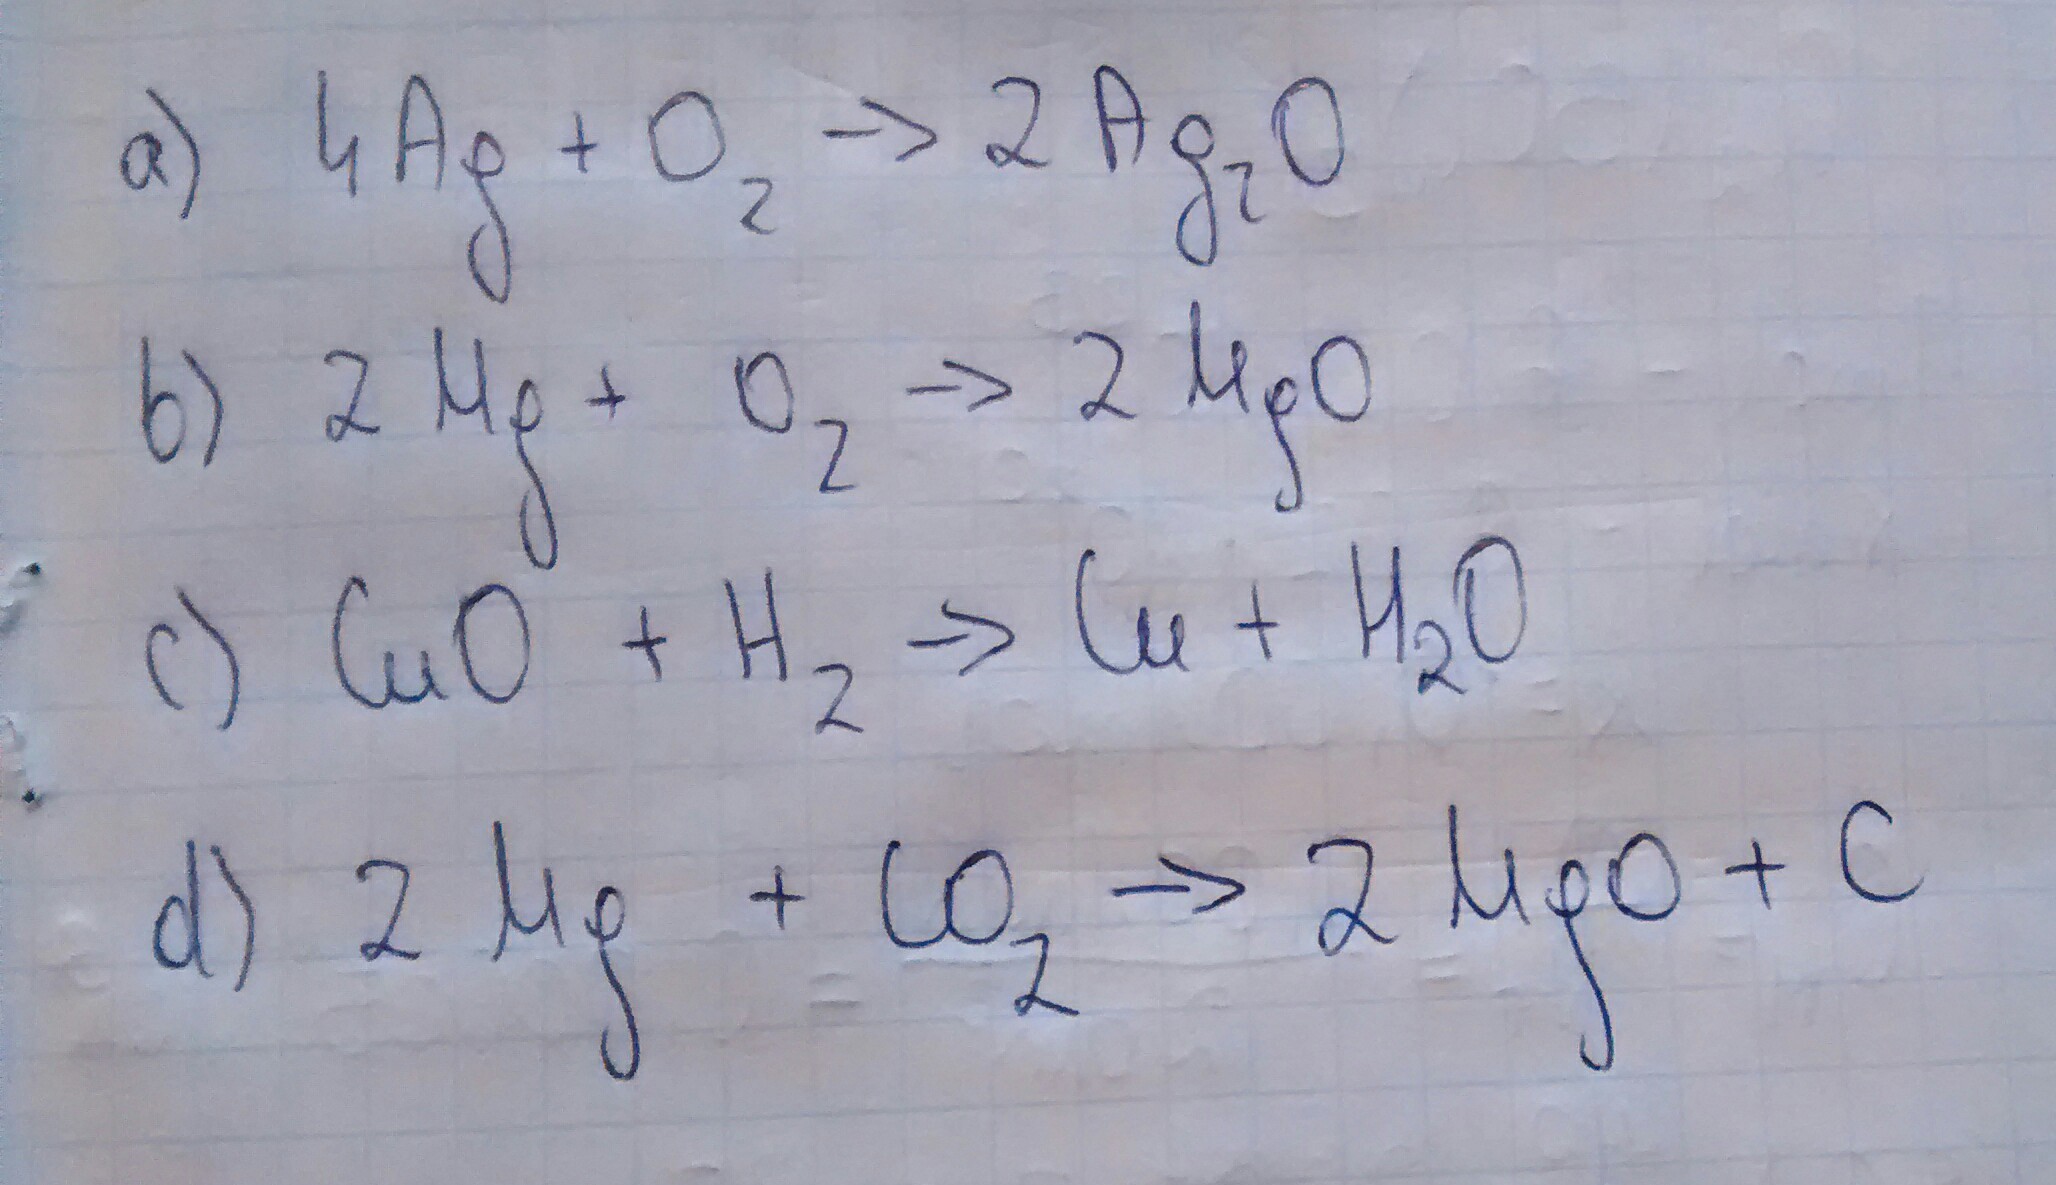 a) 4Ag + O₂ → 2Ag₂O
b) 2Mg + O₂ → 2MgO
c) CuO + H₂ → Cu + H₂O
d) 2Mg + CO₂ → 2MgO + C